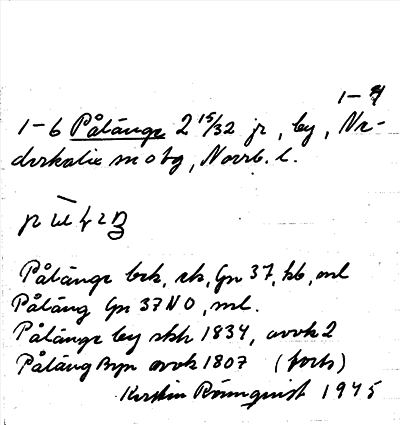 1-4
1-6 Pålänge 2 15/32 jr, by, Ne-
derkalix sn o tg, Norrb. l.
Pålänge brk, sk, Gn 37, kb, ml
Påläng Gn 37 NO, ml.
Pålänge by skh 1834, avvk 2
Påläng Byn avvk 1807 (forts)
Kerstin Rönnquist 1945